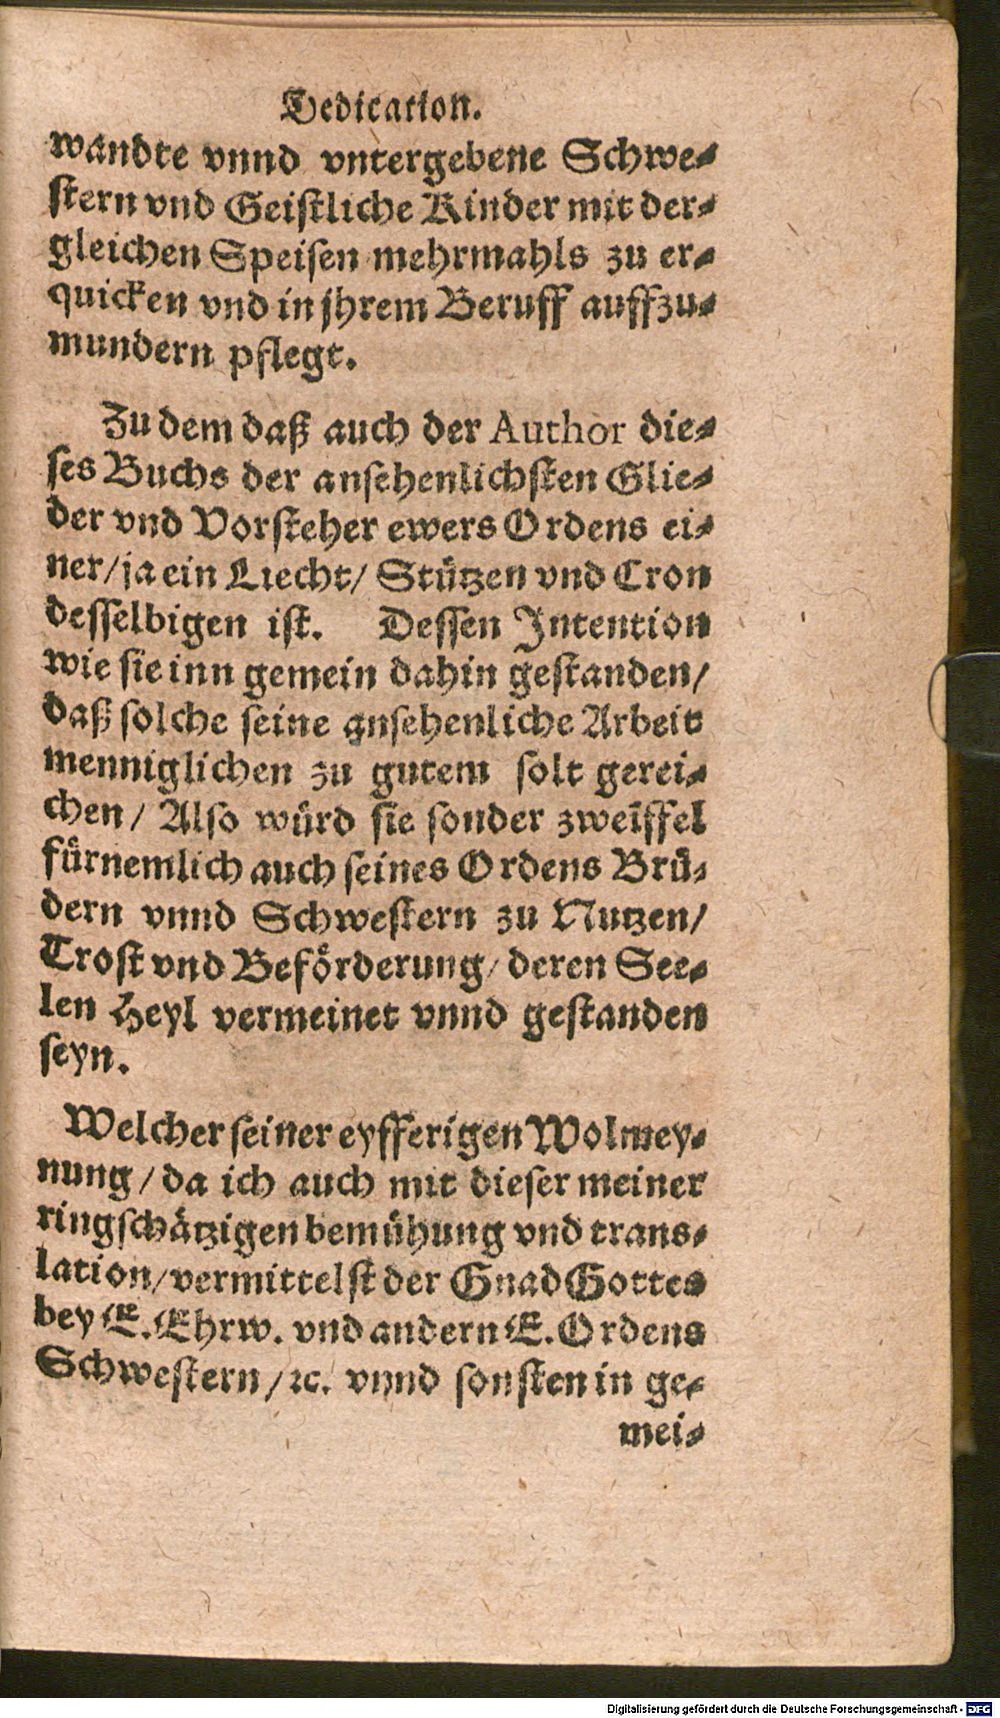 Dedication.
wandte vnnd vntergebene Schwe-
stern vnd Geistliche Kinder mit der-
gleichen Speisen mehrmahls zu er-
quicken vnd in jhrem Beruff auffzu-
mundern pflegt.
Zu dem daß auch der Author die-
ses Buchs der ansehenlichsten Glie-
der vnd Vorsteher ewers Ordens ei-
ner/ ja ein Liecht/ Stützen vnd Cron
desselbigen ist. Dessen Intention
wie sie inn gemein dahin gestanden/
daß solche seine ansehenliche Arbeit
menniglichen zu gutem solt gerei-
chen/ Also würd sie sonder zweiffel
fürnemlich auch seines Ordens Brü-
dern vnnd Schwestern zu Nutzen/
Trost vnd Beförderung/ deren See-
len Heyl vermeinet vnnd gestanden
seyn.
Welcher seiner eyfferigen Wolmey-
nung/ da ich auch mit dieser meiner
ringschätzigen bemühung vnd trans-
lation/ vermittelst der Gnad Gottes
bey E. Ehrw. vnd andern E. Ordens
Schwestern/ ꝛc. vnnd sonsten in ge-
mei-
Digitalisierung gefördert durch die Deutsche Forschungsgemeinschaft - DFG